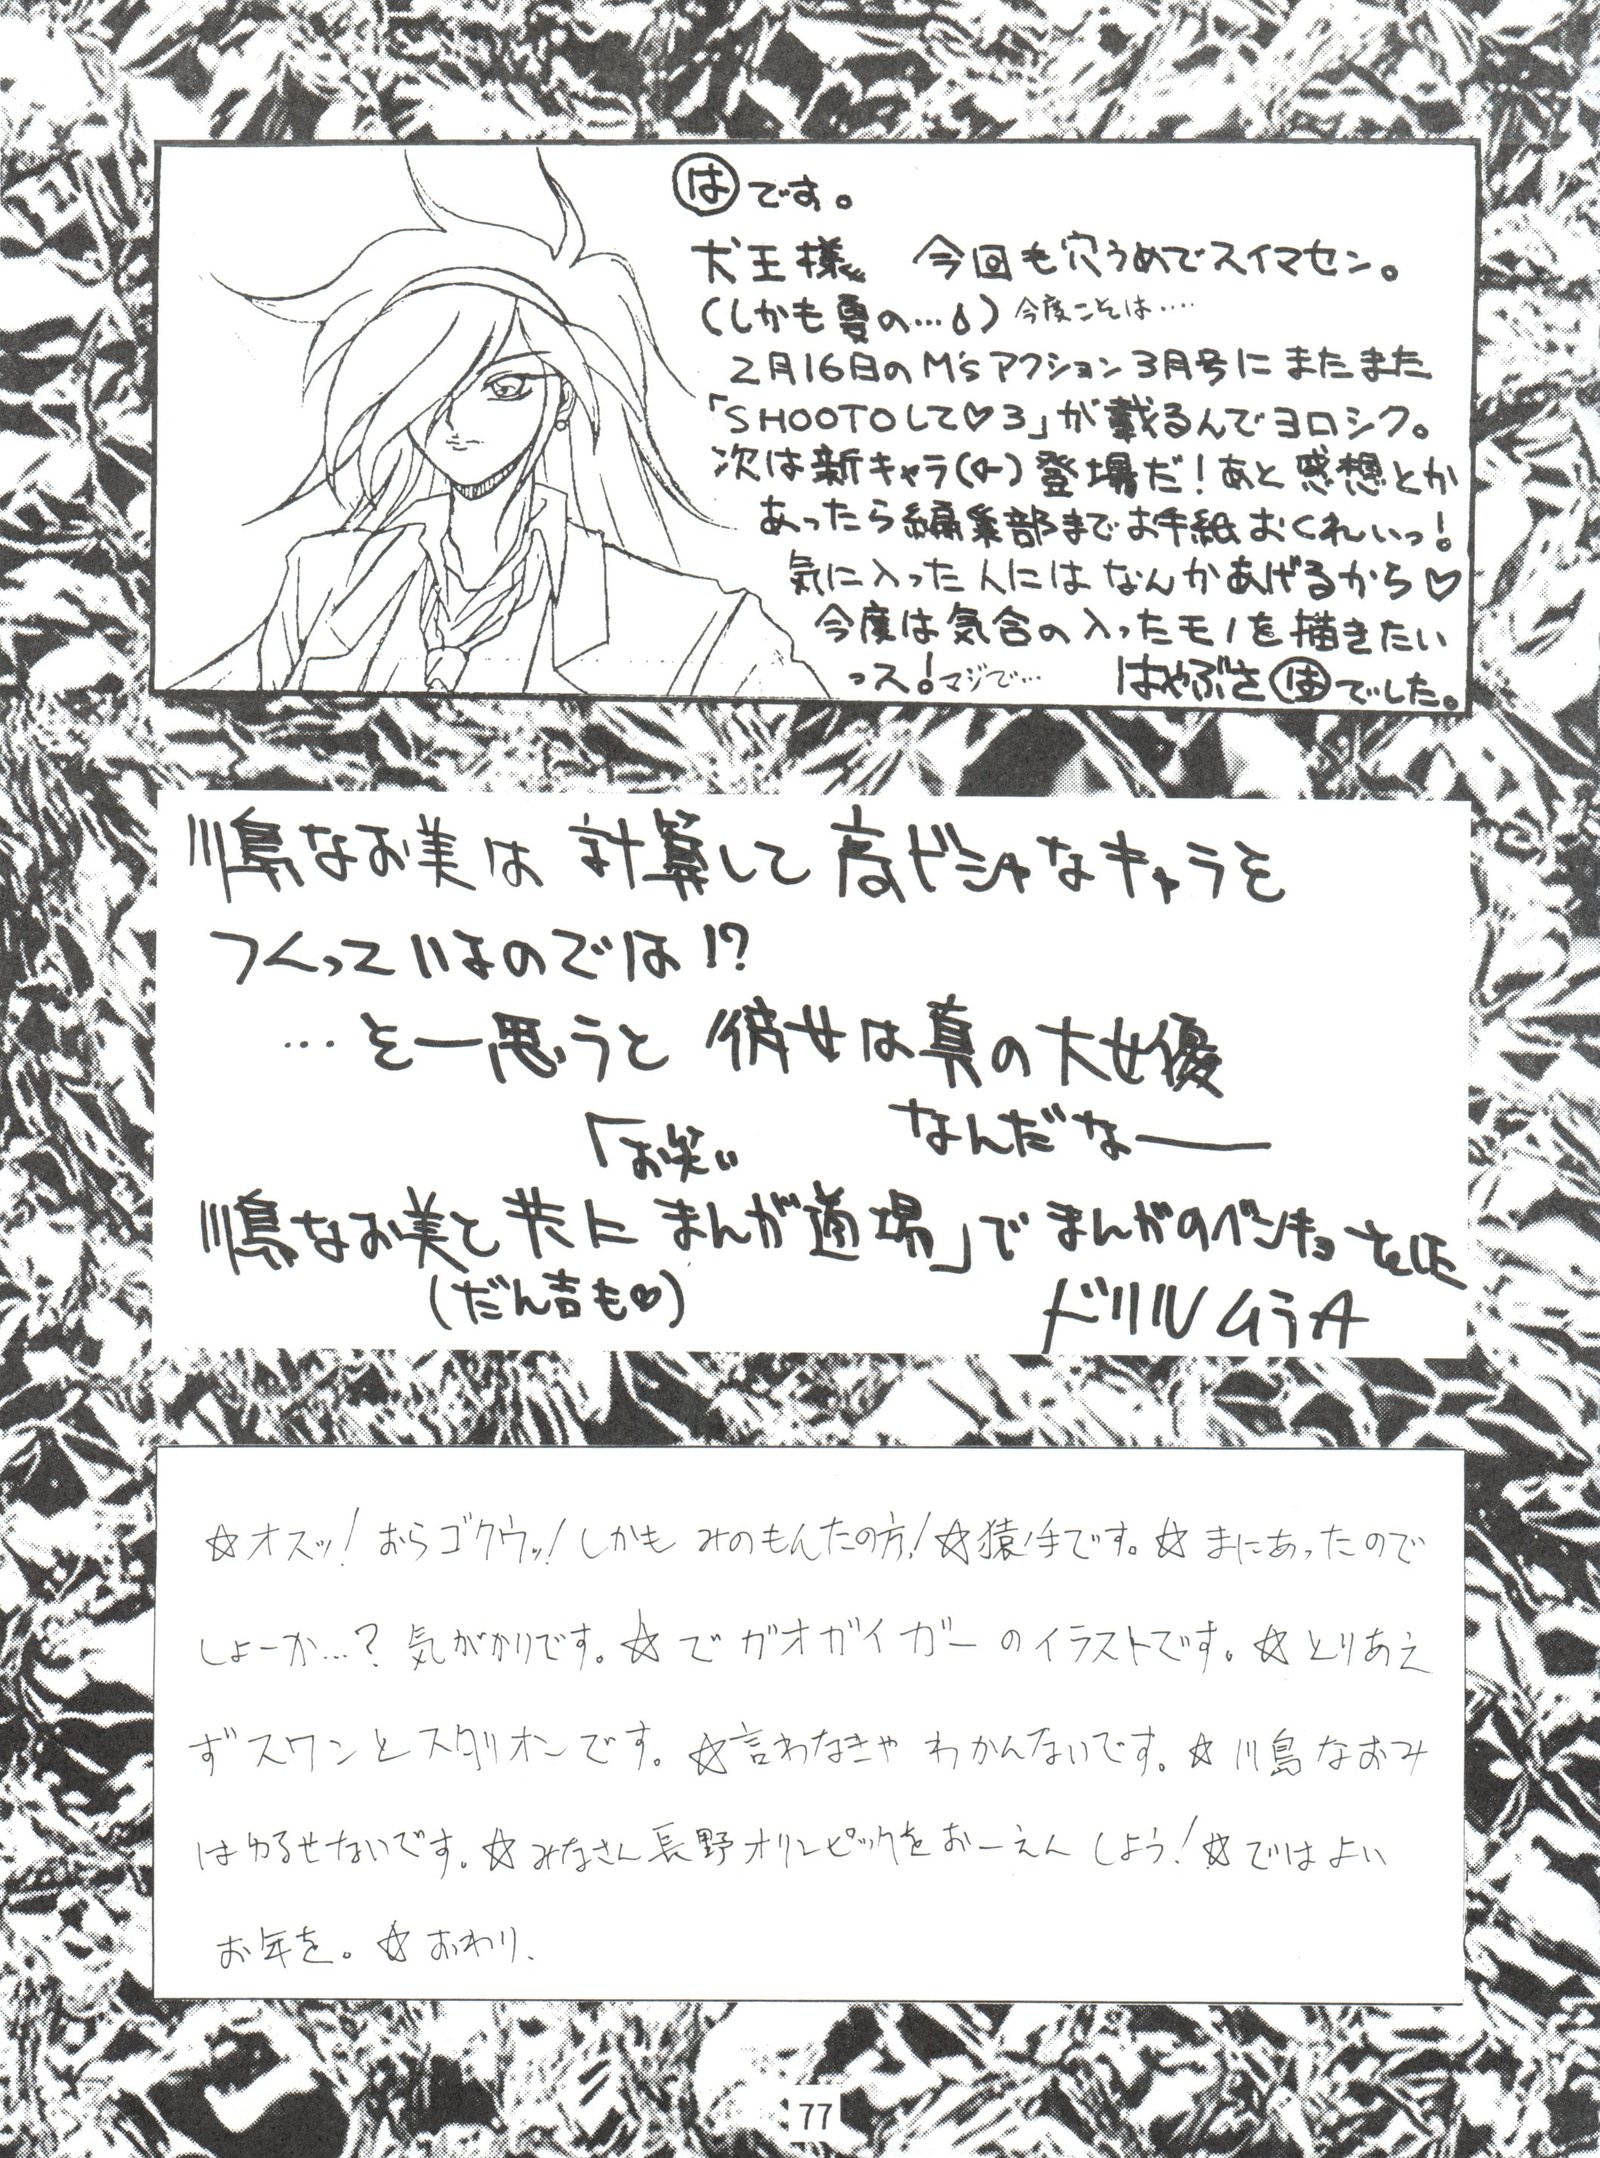 はです。
犬王様 今回も穴うめでスイマセン。
(しかも夏の…) 今度こそは‥‥
2月16日のM'sアクション3月号にまたまた
「SHOOTOして♡3」が載るんでヨロシク。
次は新キャラ(♀)登場だ!あと感想とか
あったら編集部までお手紙おくれいっ!
気に入った人にはなんかあげるから♡
今度は気合の入ったモノを描きたい
っス!マジで… はやぶさはでした。
川島なお美は計算して高ビシャなキャラを
つくっているのでは!?
…と一思うと 彼女は真の大女優
なんだなー
「お笑い
川島なお美と共にまんが道場」でまんがのベンキョーをした
(だん吉も♡)
ドリルムラA
☆オスッ!おらゴクウッ!しかもみのもんたの方!☆猿ノ手です。☆まにあったので
しょーか…?気がかりです。☆でガオガイガーのイラストです。☆とりあえ
ずスワンとスタリオンです。☆言わなきゃわかんないです。☆川島なおみ
はゆるせないです。☆みなさん長野オリンピックをおーえんしよう!☆ではよい
お年を。☆おわり、
77